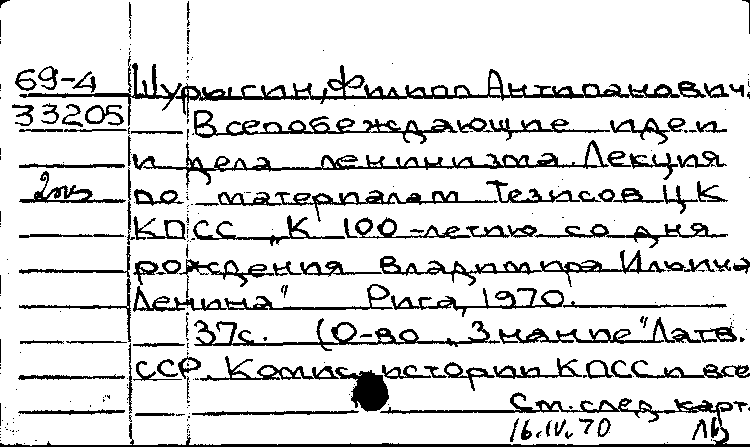 69-4 Шурыгин, Филипп Антипанович.
33205 Всепобеждающие идеи
и дела ленинизма. Лекция
2экз по материалам Тезисов ЦК
КПСС „К 100-летию со дня
рождения Владимира Ильича
Ленина" Рига, 1970.
37с. (О-во „Знание" Латв.
ССР. Комис. истории КПСС и все
См. след. карт.
16.IV.70